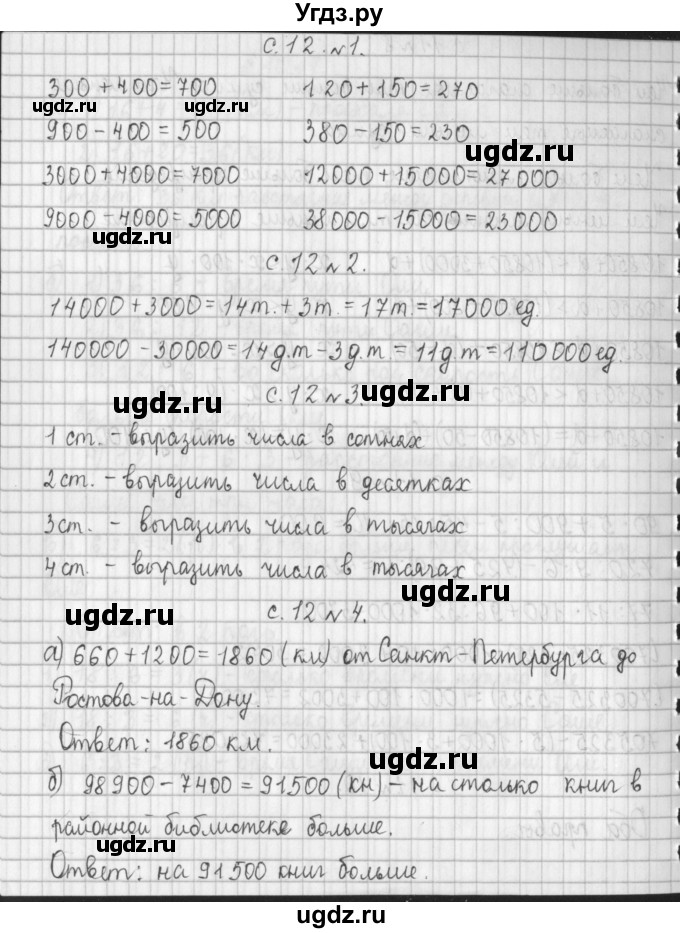 Угдз.ру
с. 12. №1.
300 + 400 = 700 120 + 150 = 270
ugdz.ru ugdz.ru
900 - 400 = 500 380 - 150 = 230
ugdz.ru
3000 + 4000 = 7000 12000 + 15000 = 27000
9000 - 4000 = 5000 38000 - 15000 = 23000
ugdz.ru
с. 12 №2.
14000 + 3000 = 14т. + 3т. = 17т. = 17000 ед.
140000 - 30000 = 14д.т - 3д.т. = 11д.т = 110000 ед.
с. 12 №3.
ugdz.ru ugdz.ru
1 ст. - выразить числа в сотнях
2 ст. - выразить числа в десятках
3 ст. - выразить числа в тысячах
4 ст. - выразить числа в тысячах
ugdz.ru
с. 12 №4.
ugdz.ru
а) 660 + 1200 = 1860 (км) от Санкт-Петербурга до
Ростова-на-Дону.
Ответ: 1860 км.
ugdz.ru
б) 98900 - 7400 = 91500 (кн) - на столько книг в
районной библиотеке больше.
ugdz.ru
Ответ: на 91500 книг больше.
ugdz.ru